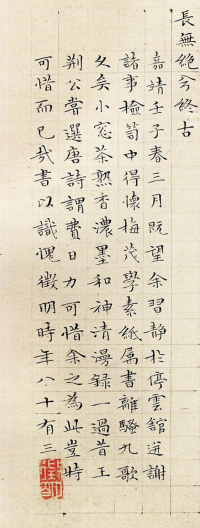 長無絕兮終古
嘉靖壬子春三月既望余習靜於停雲館迸謝
諸事檢笥中得懷梅茂學素紙屬書離騷九歌
久矣小窓茶熟香濃墨和神清漫録一過昔王
荆公嘗選唐詩謂費日力可惜余之為此豈特
可惜而已哉書以識愧徵明時年八十有三